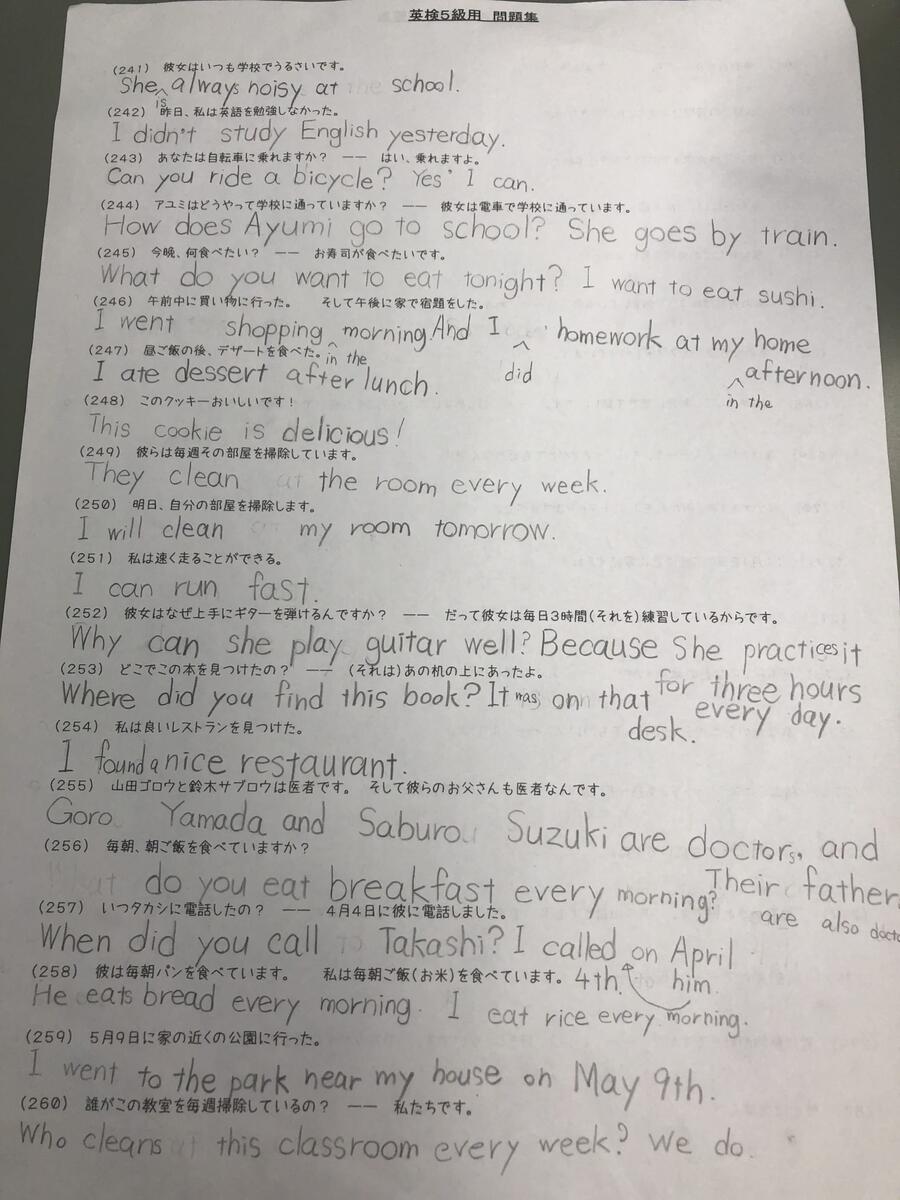 英検5級用 問題集
(241) 彼女はいつも学校でうるさいです。
She always noisy at school.
is
(242) 昨日、私は英語を勉強しなかった。
I didn't study English yesterday.
(243) あなたは自転車に乗れますか? ―― はい、乗れますよ。
Can you ride a bicycle? Yes' I can.
(244) アユミはどうやって学校に通っていますか? ―― 彼女は電車で学校に通っています。
How does Ayumi go to school? She goes by train.
(245) 今晩、何食べたい? ―― お寿司が食べたいです。
What do you want to eat tonight? I want to eat sushi.
(246) 午前中に買い物に行った。 そして午後に家で宿題をした。
I went shopping morning. And I homework at my home
in the
did
afternoon.
in the
(247) 昼ご飯の後、デザートを食べた。
I ate dessert after lunch.
(248) このクッキーおいしいです!
This cookie is delicious!
(249) 彼らは毎週その部屋を掃除しています。
They clean the room every week.
(250) 明日、自分の部屋を掃除します。
I will clean my room tomorrow.
(251) 私は速く走ることができる。
I can run fast.
(252) 彼女はなぜ上手にギターを弾けるんですか? ―― だって彼女は毎日3時間(それを)練習しているからです。
Why can she play guitar well? Because She practices it
for three hours
every day.
(253) どこでこの本を見つけたの? ―― (それは)あの机の上にあったよ。
Where did you find this book? It was on that
desk.
(254) 私は良いレストランを見つけた。
I found a nice restaurant.
(255) 山田ゴロウと鈴木サブロウは医者です。 そして彼らのお父さんも医者なんです。
Goro Yamada and Saburo Suzuki are doctors, and
Their father
are also
(256) 毎朝、朝ご飯を食べていますか?
do you eat breakfast every morning?
(257) いつタカシに電話したの? ―― 4月4日に彼に電話しました。
When did you call Takashi? I called on April
4th. him
(258) 彼は毎朝パンを食べています。 私は毎朝ご飯(お米)を食べています。
He eats bread every morning. I eat rice every morning.
(259) 5月9日に家の近くの公園に行った。
I went to the park near my house on May 9th.
(260) 誰がこの教室を毎週掃除しているの? ―― 私たちです。
Who cleans this classroom every week? We do.